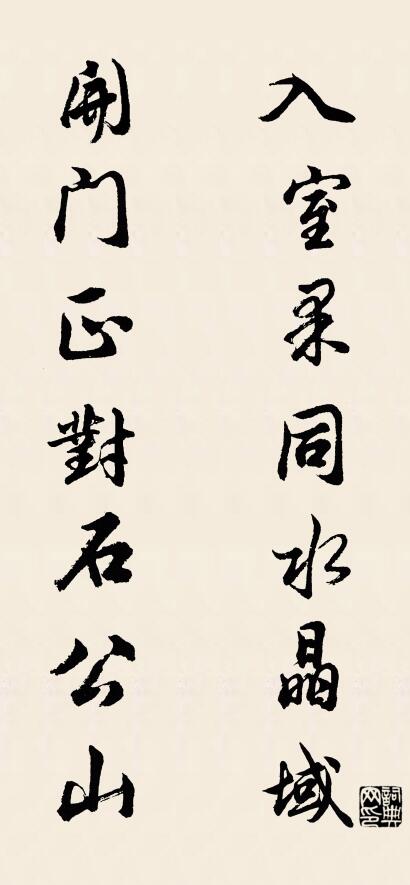 入室果同水晶域
開门正對石公山
詞典网印